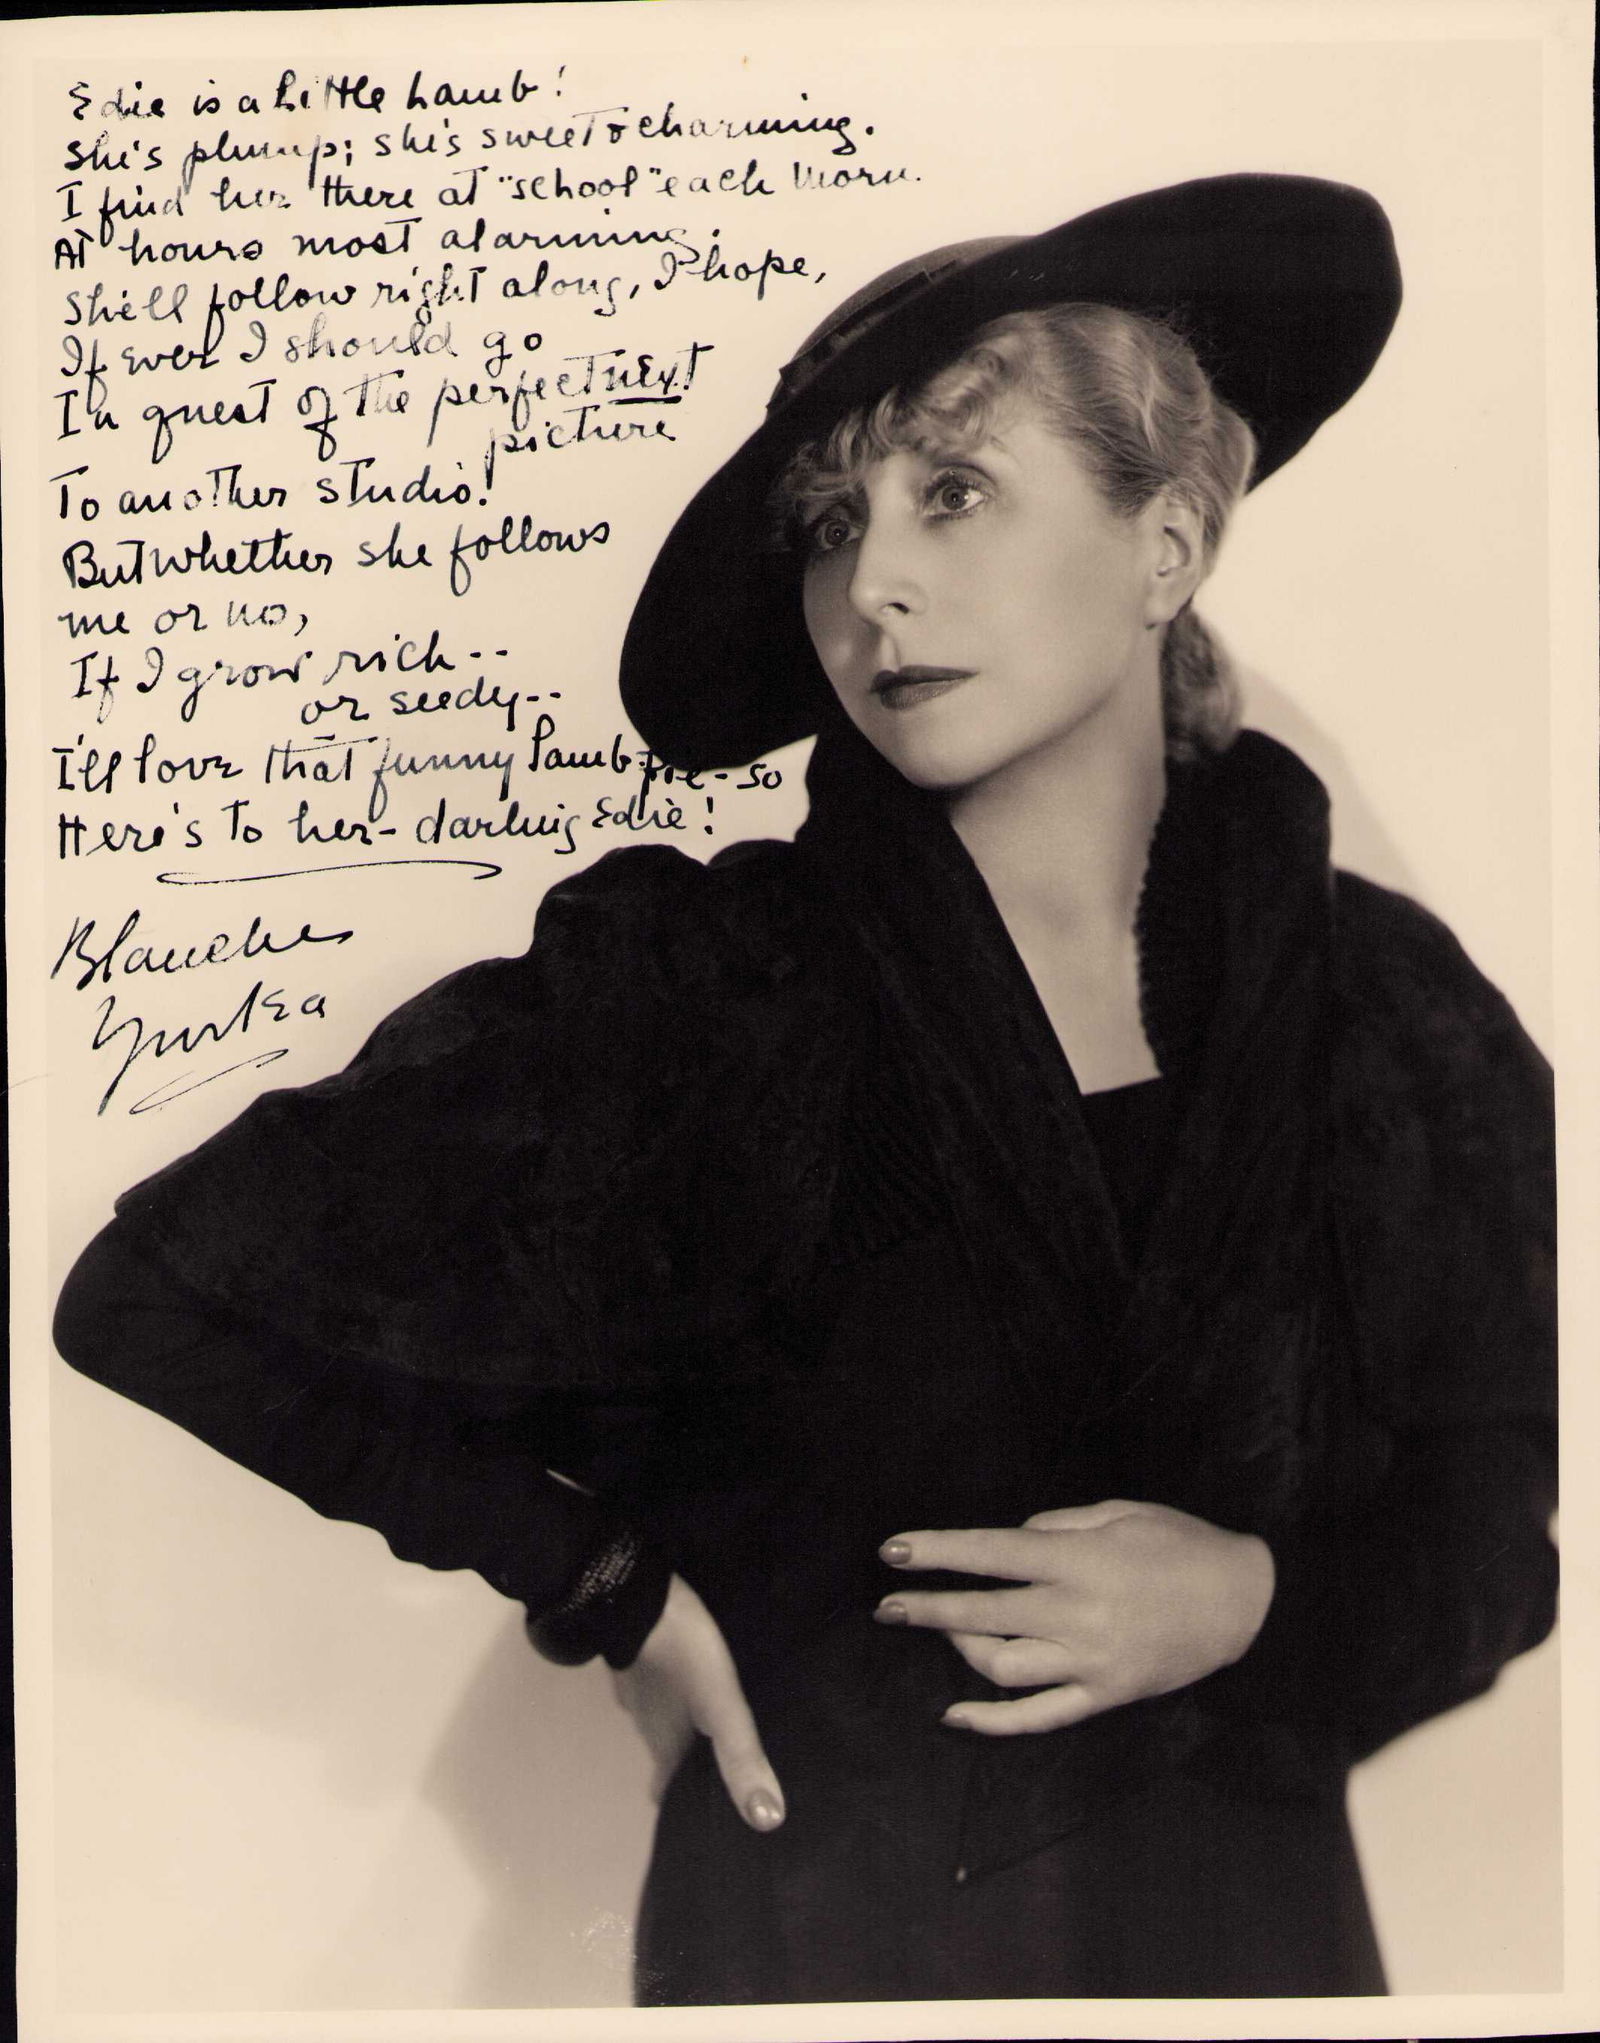 Edie is a Little Lamb!
She's plump; she's sweet & charming.
I find her there at "school" each Morn.
At hours most alarming.
She'll follow right along, I hope,
If ever I should go
In quest of the perfect next
picture
To another studio!
But whether she follows
me or no,
If I grow rich--
or seedy--
I'll love that funny Lamb-pie-so
Here's to her- darling Edie!
Blanche
Yurka